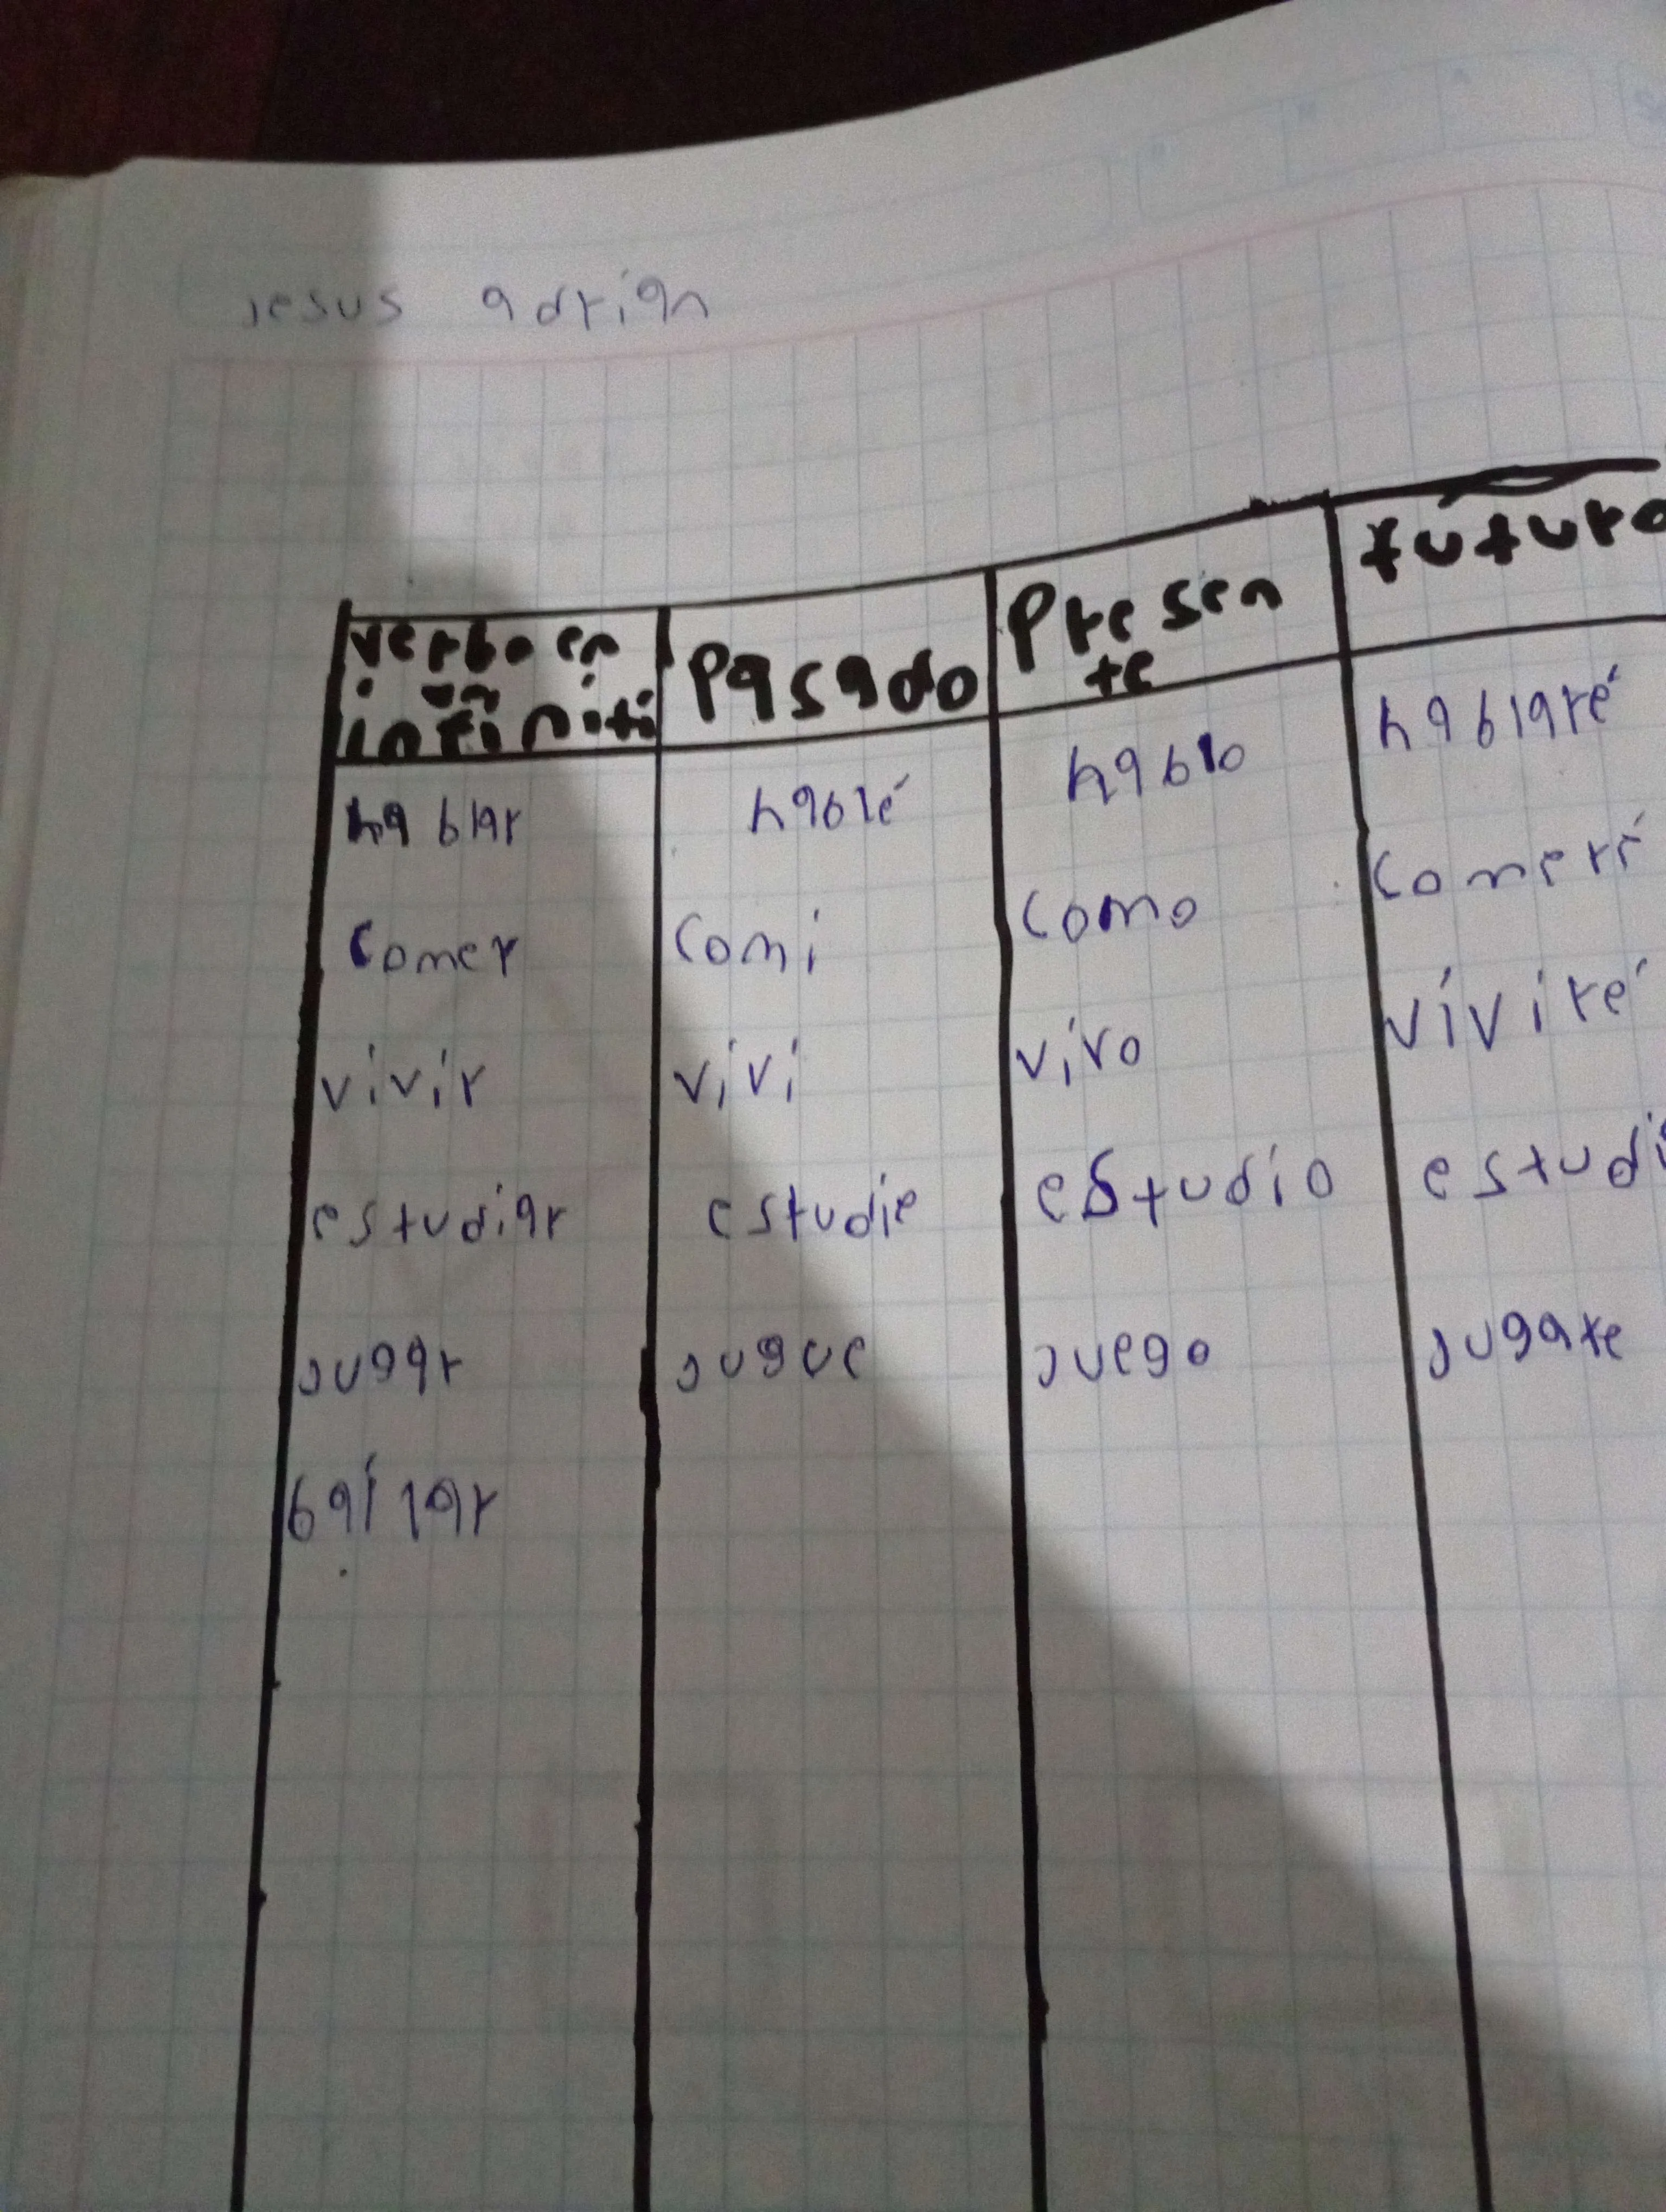 Jesus adrian
verbo en infiniti Pasado Presente futuro
hablar hablé hablo hablaré
comer comi como comeré
vivir vivi vivo viviré
estudiar estudie estudio estudi
jugar jugue juego jugare
bailar